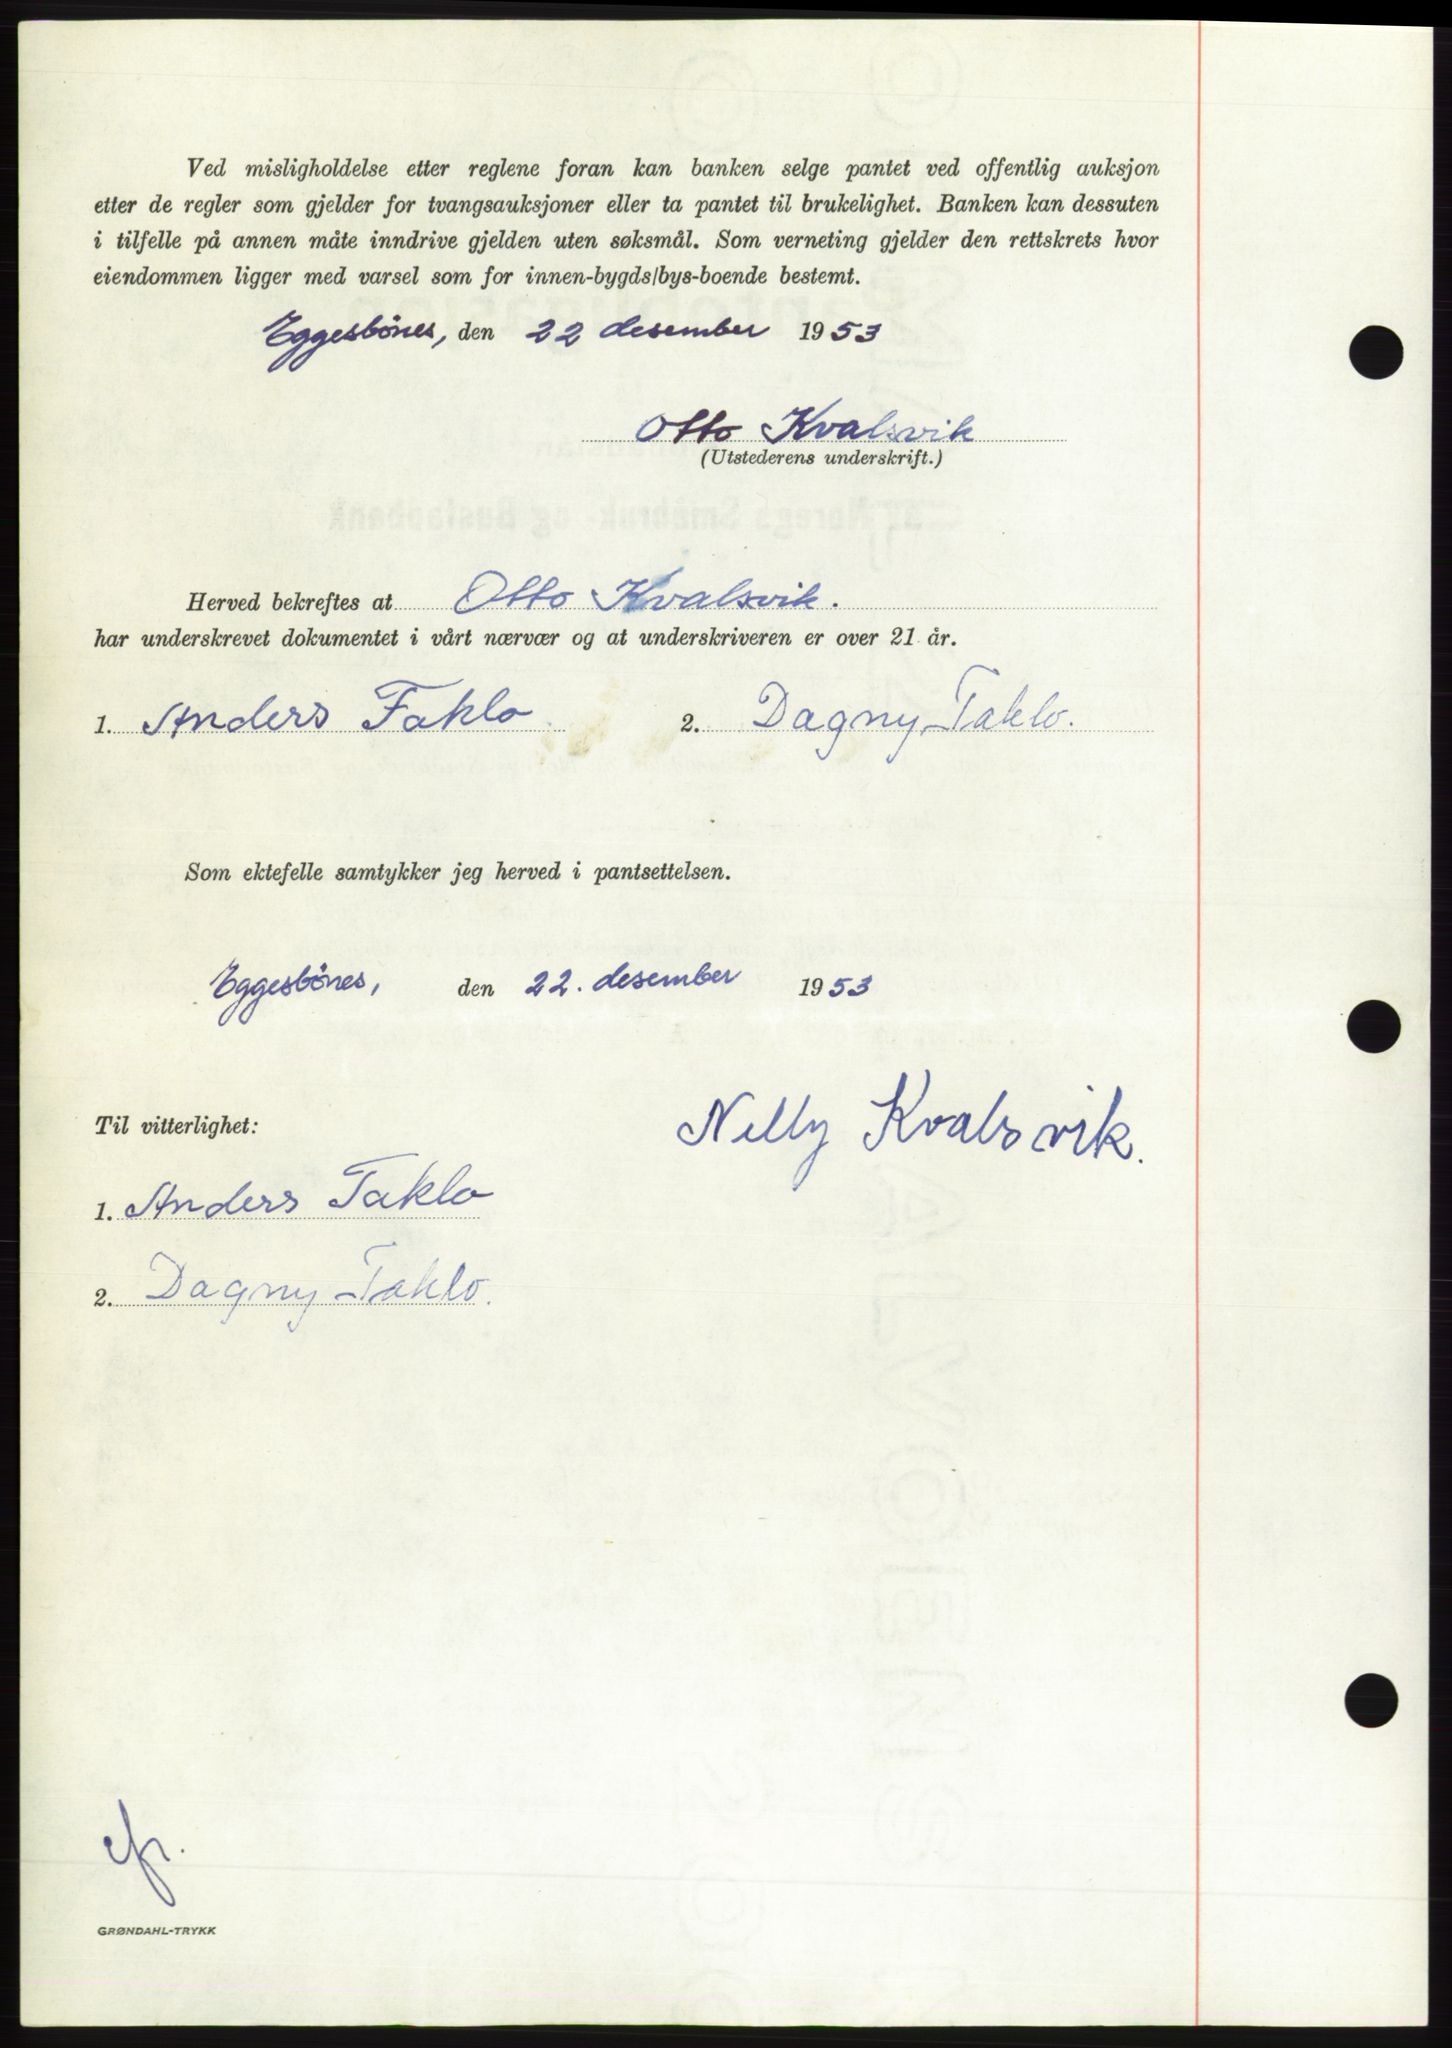 Ved misligholdelse etter reglene foran kan banken selge pantet ved offentlig auksjon
etter de regler som gjelder for tvangsauksjoner eller ta pantet til brukelighet. Banken kan dessuten
i tilfelle på annen måte inndrive gjelden uten søksmål. Som verneting gjelder den rettskrets hvor
eiendommen ligger med varsel som for innen-bygds/bys-boende bestemt.
Eggesbönes, den 22 desember 1953
Otto Kvalsvik
(Utstederens underskrift.)
Herved bekreftes at Otto Kvalsvik.
har underskrevet dokumentet i vårt nærvær og at underskriveren er over 21 år.
1. Anders Taklo 2. Dagny Taklo.
Som ektefelle samtykker jeg herved i pantsettelsen.
Eggesbönes, den 22. desember 1953
Til vitterlighet:
Nelly Kvalsvik.
1. Anders Taklo
2. Dagny Taklo.
GRØNDAHL-TRYKK